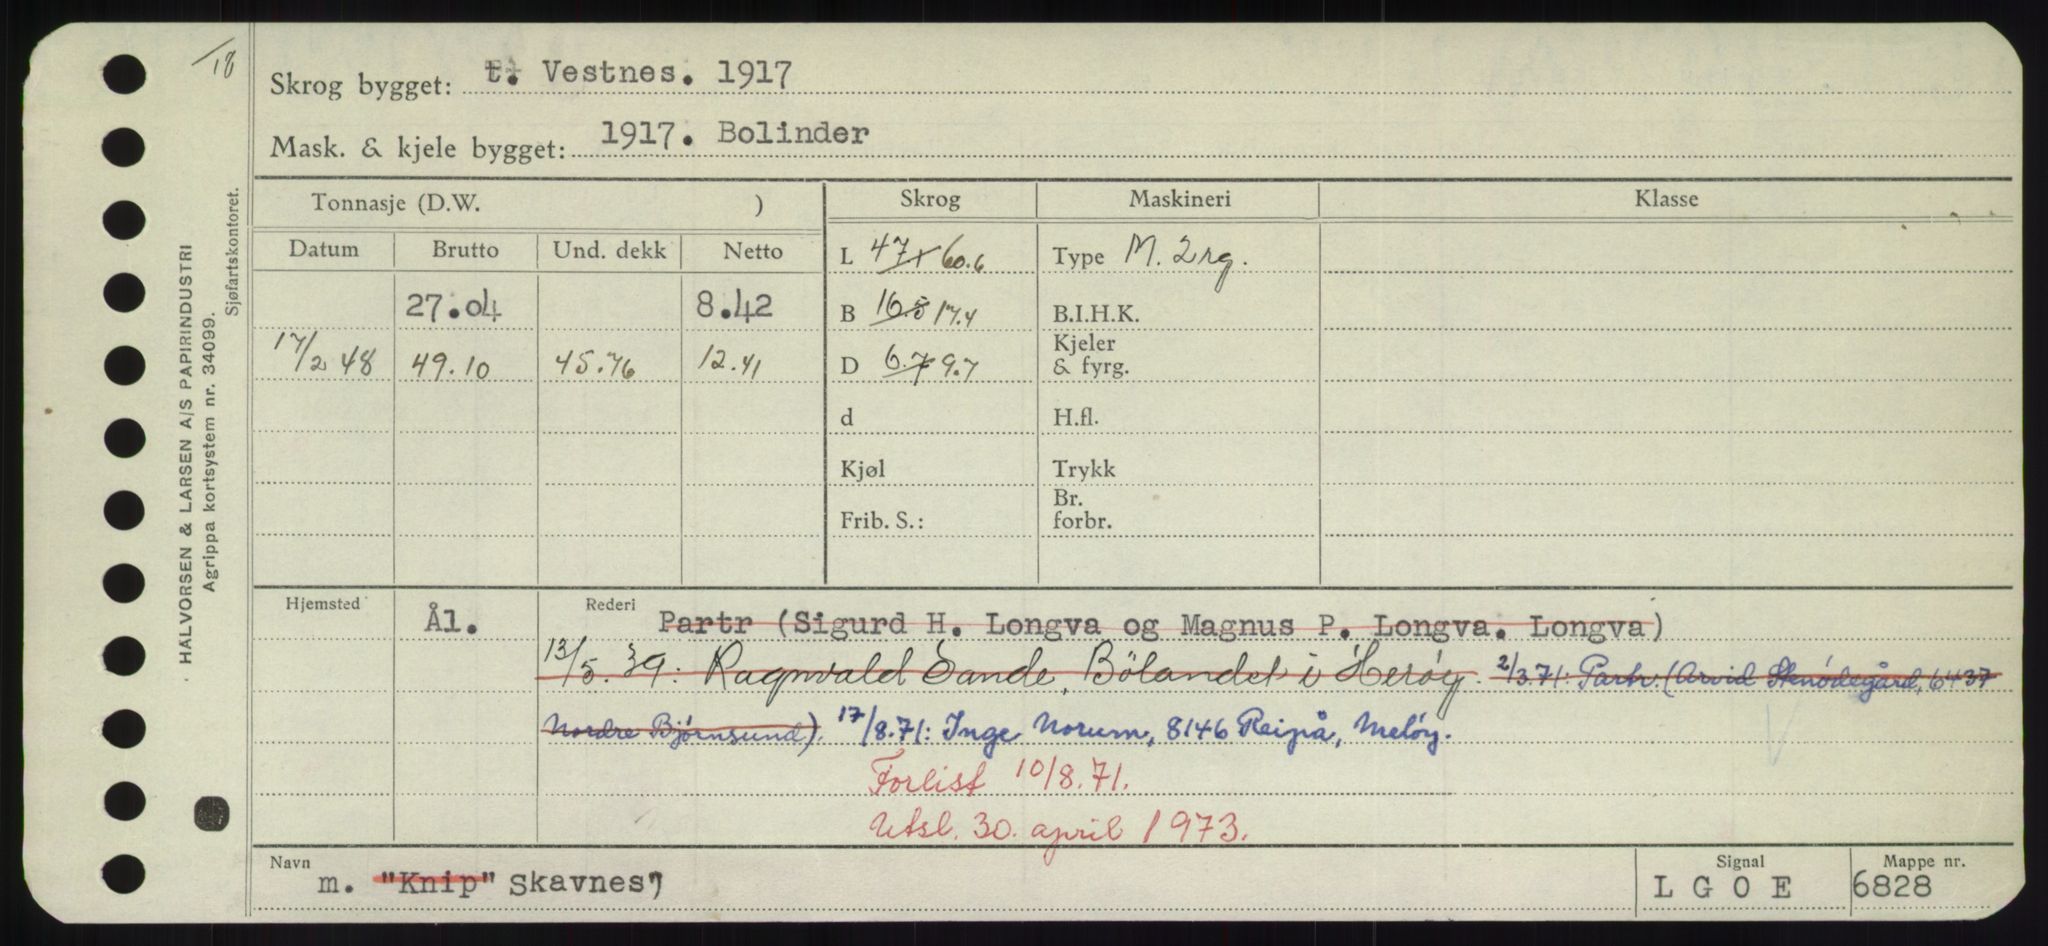 18
Skrog bygget: t. Vestnes. 1917
Mask. & kjele bygget: 1917. Bolinder
HALVORSEN & LARSEN A/S PAPIRINDUSTRI
Agrippa kortsystem nr. 34099.
Sjøfartskontoret.
Tonnasje (D.W. ) Skrog Maskineri Klasse
Datum Brutto Und. dekk Netto
L 47,1 60.6 Type M. 2rg.
27.04 8.42 B 16.5 17.4 B.I.H.K.
17/2 48 49.10 45.76 12.41 D 6.7 9.7 Kjeler
& fyrg.
d H.fl.
Kjøl Trykk
Br.
Frib. S.: forbr.
Hjemsted Ål. Rederi Partr (Sigurd H. Longva og Magnus P. Longva. Longva)
13/5.39: Ragnvald Sande, Bölandet i Herøy. 2/3.71: Partr. (Arvid Sknødegård, 6437
Nordre Bjørnsund). 17/8.71: Inge Norum, 8146 Reipå, Meløy.
Forlist 10/8.71.
Utsl. 30. april 1973.
Navn m. "Knip" Skavnes" Signal L G O E Mappe nr. 6828